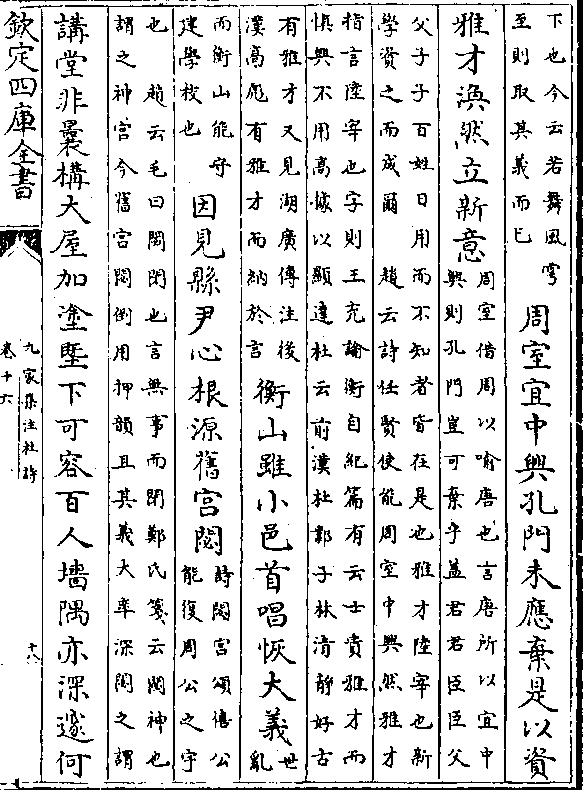 下也今云若舞風雩
至則取其義而已
周室宜中興孔門未應棄是以資
雅才渙然立新意
周室借周以喻唐也言唐所以宜中
興則孔門豈可棄乎蓋君君臣臣父
父子子百姓日用而不知者皆在是也雅才陸宰也新
學資之而成爾　趙云詩任賢使能周室中興然雅才
指言陸宰也字則王充論衡自紀篇有云士貴雅才而
慎興不用高據以顯達杜云前漢杜鄴子林清靜好古
有雅才又見湖廣傳注後
漢高彪有雅才而納於言
衡山雖小邑首唱恢大義
世
亂
而衡山能守
建學校也
因見縣尹心根源舊宮閟
詩閟宮頌僖公
能復周公之宇
也　趙云毛曰閟閉也言無事而閉鄭氏箋云閟神也
謂之神宮今舊宮閟倒用押韻且其義大率深閟之謂
講堂非曩構大屋加塗塈下可容百人墻隅亦深邃何
欽定四庫全書
九家集注杜詩
卷十六
十八